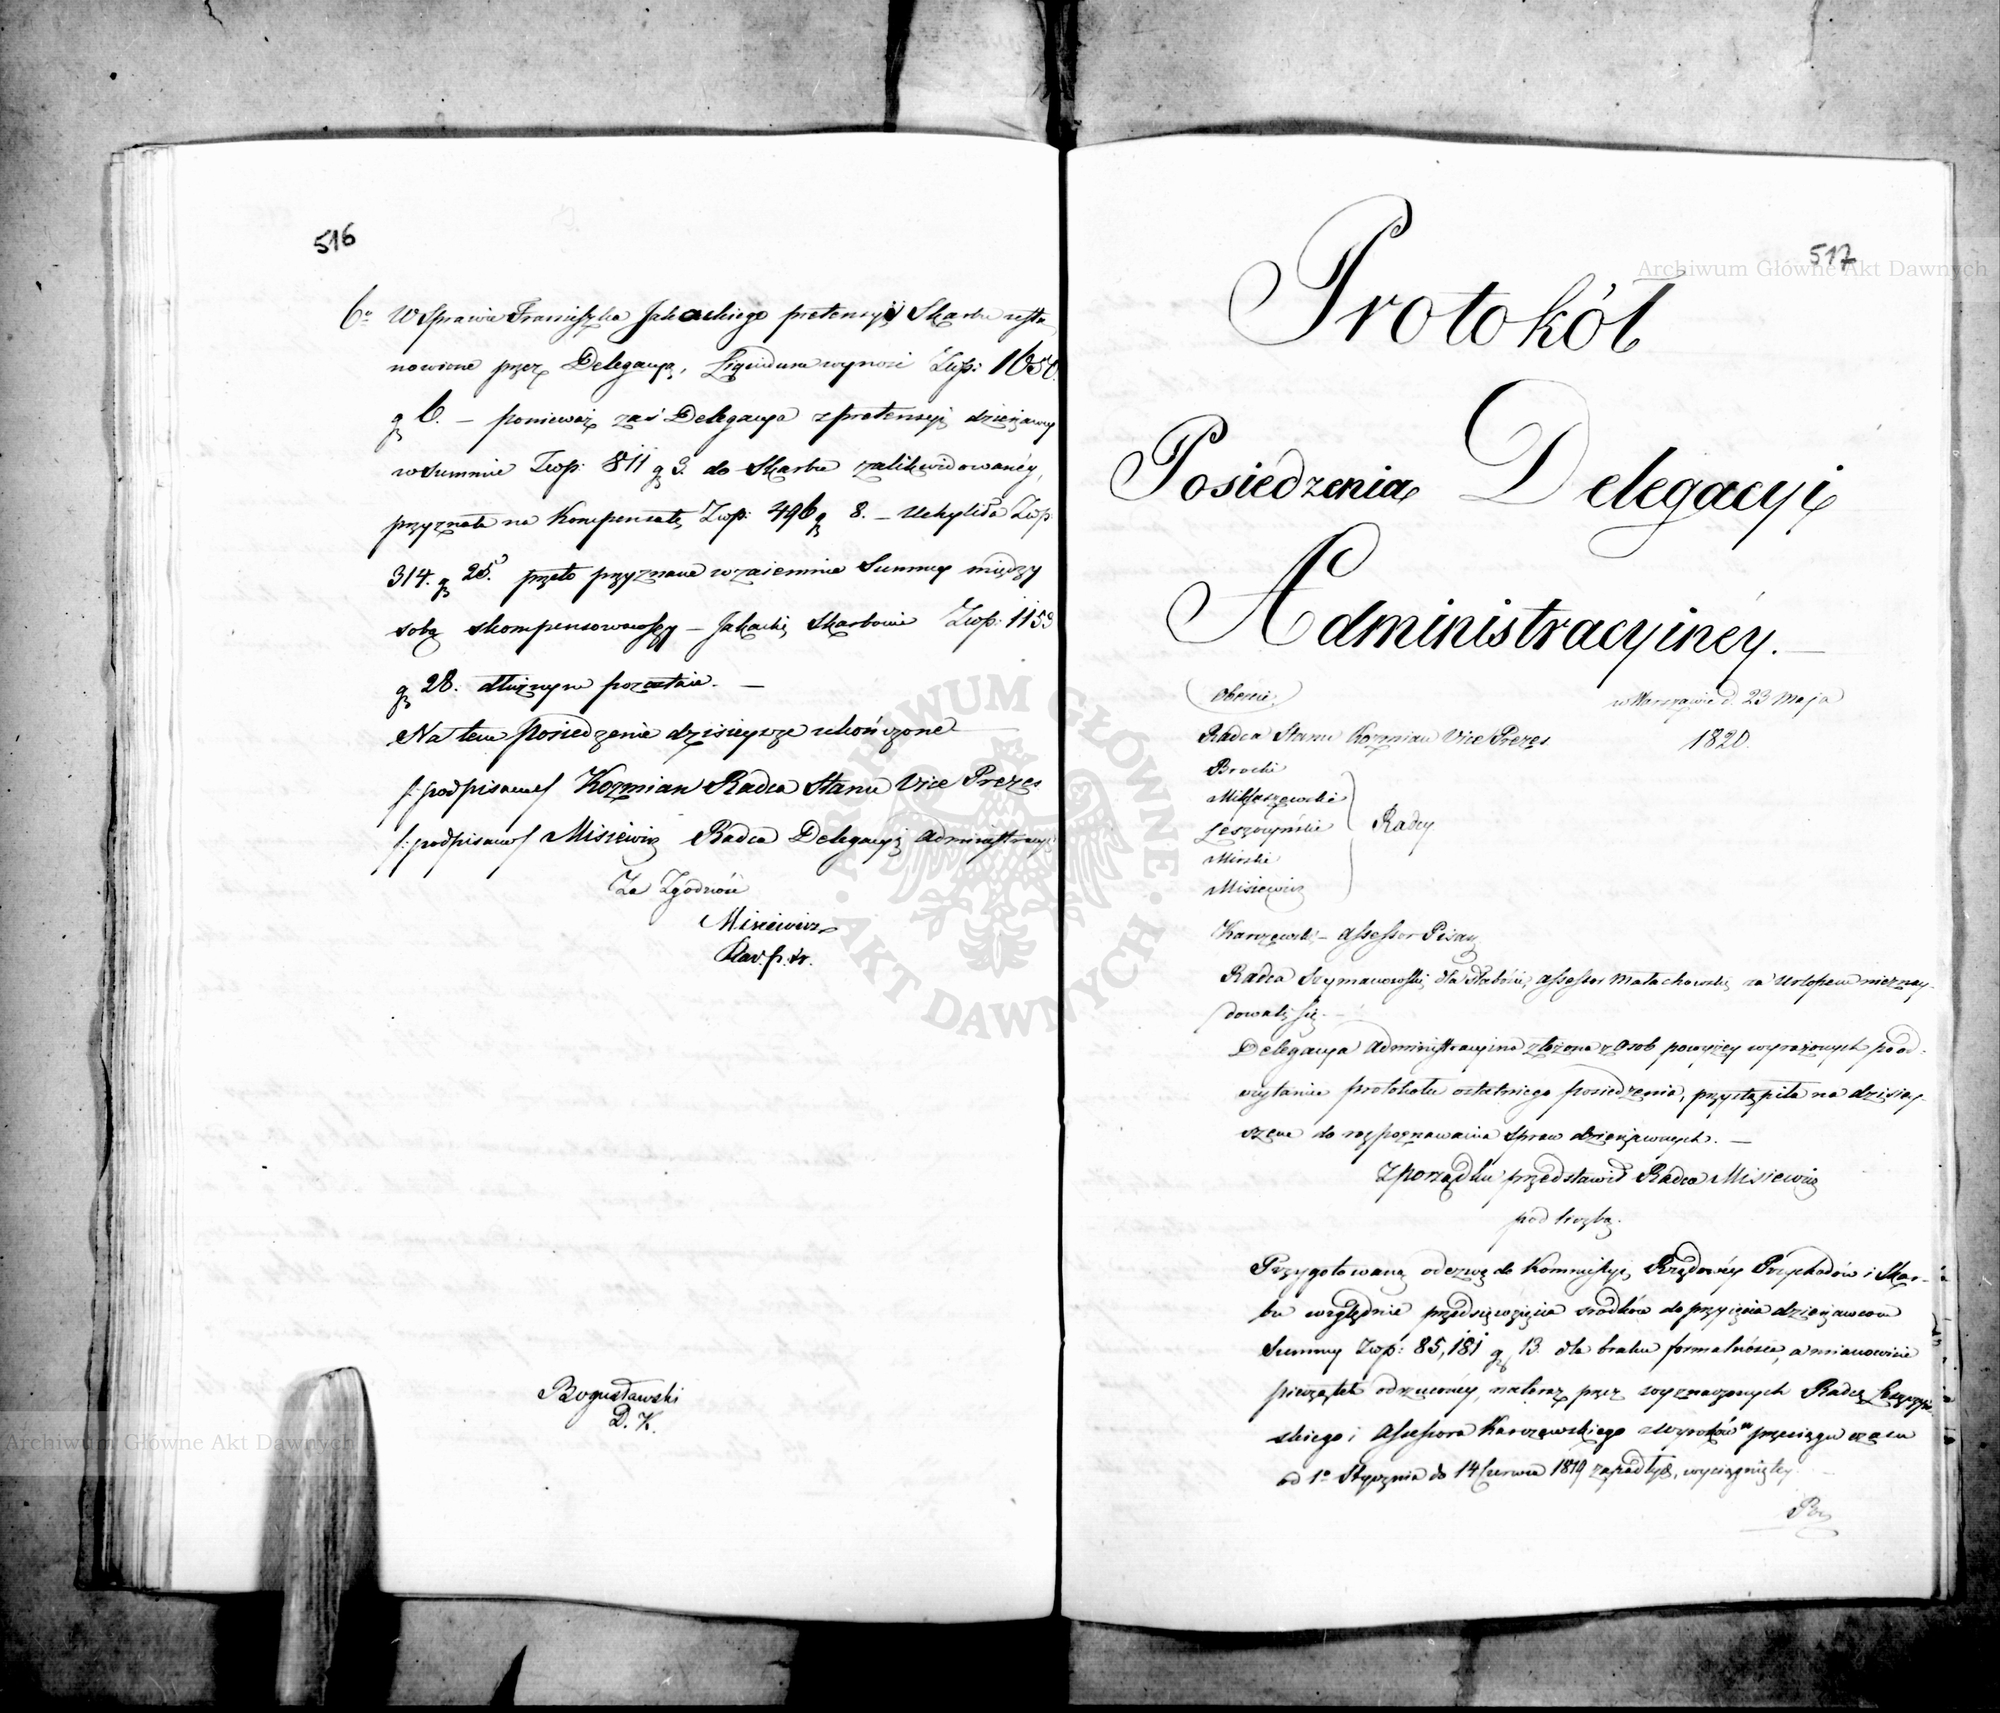 516
6o W Sprawie Franciszka Jakackiego pretensyi Skarbu usta
nowione przez Delegacyą, Liquidum wynosi Złłp: 1650.
gr 6. – ponieważ zaś Delegacya z pretensyi dzierżawcy
w Summie Złłp: 811 gr 3. do Skarbu zalikwidowanéy,
przyznała na Kompensatę Złłp: 496 gr 8. – Uchyliła Złłp
314. gr 25. przeto przyznane wzaiemnie Summy między
sobą skompensowawszy – Jakacki Skarbowi Złłp: 1153
gr 28. dłużnym pozostaie. –
Na tem posiedzenie dzisieysze ukończone
/:podpisano/ Kozmian Radca Stanu Vice Prezes
/:podpisano/ Misiewicz Radca Delegacyi Administracyi
Za Zgodność
Misiewicz
Rad. p. tr.
Bogusławski
D. K.
517
Protokół
Posiedzenia Delegacyi
Administracyinéy. –
Obecni w Warszawie d. 23 Maja
Radca Stanu Kozmian Vice Prezes 1820.
Brocki
Mikłaszewski
Leszczyński Radcy
Mirski
Misiewicz
Karczewski – Assessor Pisarz
Radca Szymanowski dla słabości, Assessor Małachowski za Urlopem nieznay-
dowali się. –
Delegacya Administracyina złożona z osób powyżéy wyrażonych po od-
czytaniu protokołu ostatniego posiedzenia, przystąpiła na dzisiey-
szem do rozpoznawania Spraw dzierżawnych. –
Z porządku przedstawił Radca Misiewicz
pod liczbą.
Przygotowaną odezwę do Kommissyi Rządowéy Przychodów i Skar-
bu względnie przedsięwzięcia środków do przyięcia dzierżawcom
Summy Złłp: 85,181 gr 13. dla braku formalności, a mianowicie
pieczątek odrzuconéy, na teraz przez wyznaczonych Radcę Leszczyń-
skiego i Assessora Karczewskiego z wyroków w przeciągu czasu
od 1o Stycznia do 14 Czerwca 1819 zapadłych, wyciągniętéy. –